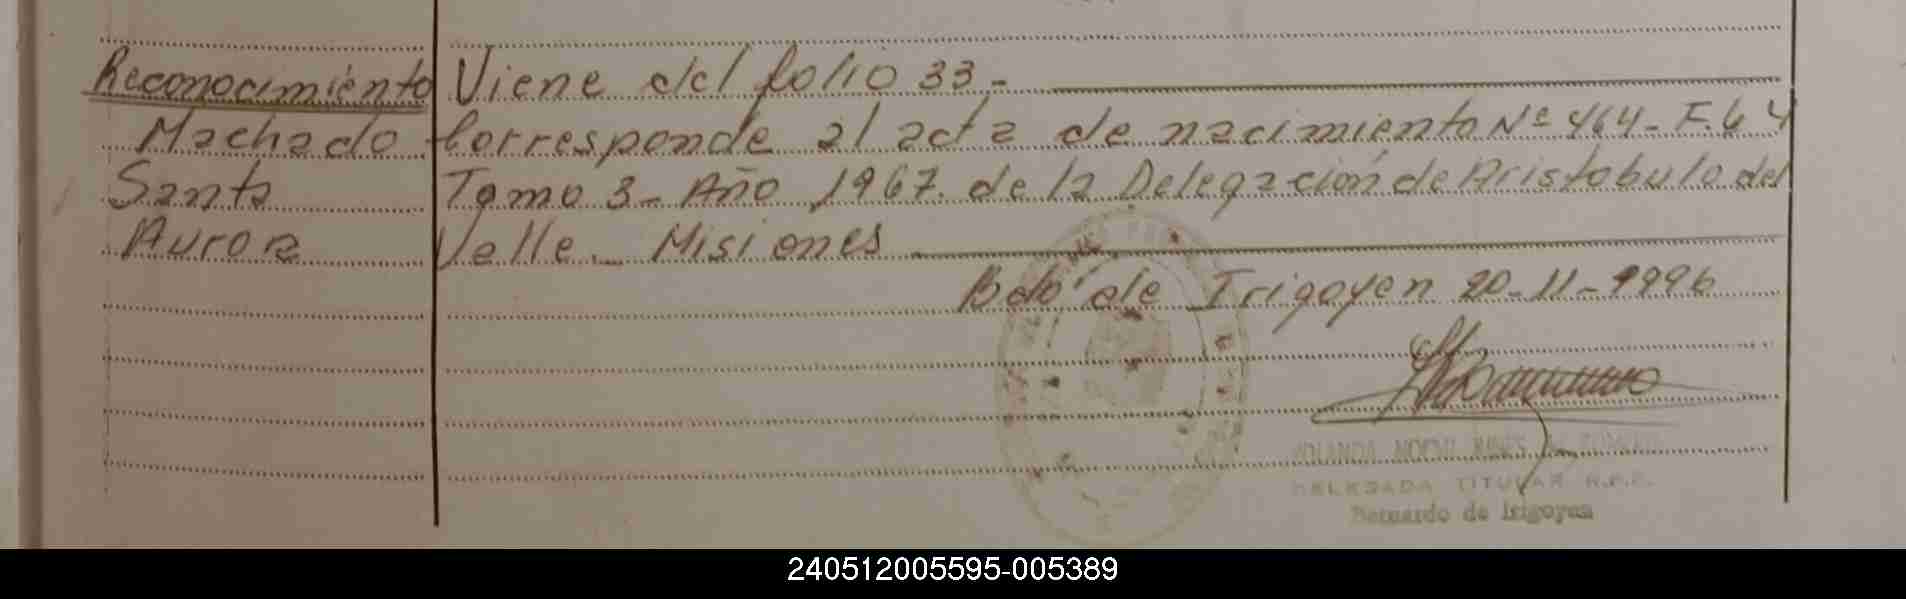 Reconocimiento Viene del folio 33 -
Machado Corresponde al acta de nacimiento Nº 464 - F. 64
Santa Tomo 3 - Año 1967. de la Delegación de Aristobulo del
Aurora Valle. - Misiones
Bdo de Irigoyen 20-11-1996
DELEGADA TITULAR R.P.P.
Bernardo de Irigoyen
240512005595-005389